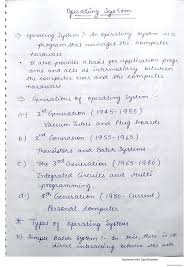 Operating System
→ Operating System :- An operating system is a
program that manages the computer
hardware
→ It also provides a basis for application progr
ams and acts as intermediary between
the computer user and the computer
hardware
→ Generations of operating System :-
a-) 1st Generation (1945-1955)
Vacuum Tubes and Plug boards
b-) 2nd Generation (1955-1965)
Transistors and Batch Systems
c-) The 3rd Generation (1965-1980)
Integrated Circuits and Multi
programming
d-) 4th Generation (1980-Current)
Personal Computer
* Types of Operating System
1) Simple Batch System : In this, there is no
direct interacting between user
Scanned with CamScanner